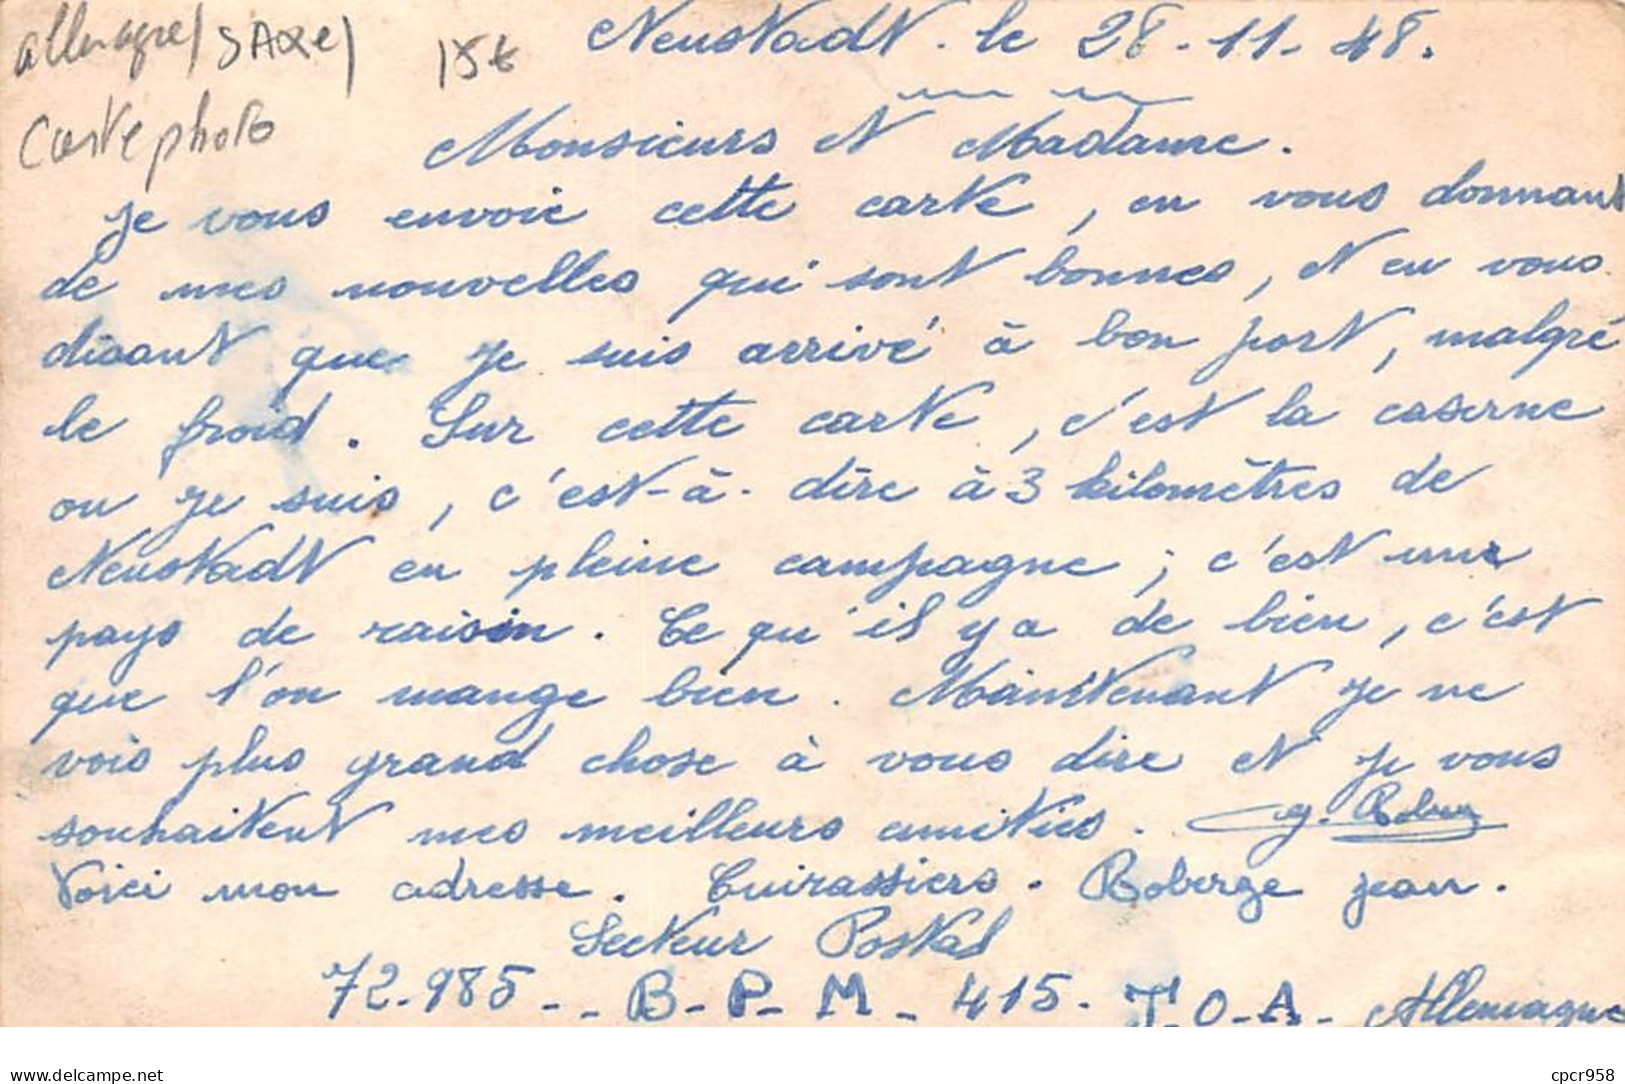 allemagne/ SAXE/ 15€
Carte photo
Neustadt. le 28-11-48.
Monsieurs et Madame.
je vous envoie cette carte, en vous donnant
de mes nouvelles qui sont bonnes, et en vous
disant que je suis arrivé à bon port, malgré
le froid. Sur cette carte, c'est la caserne
ou je suis, c'est-à-dire à 3 kilomètres de
Neustadt en pleine campagne; c'est une
pays de raisin. Ce qu'il y a de bien, c'est
que l'on mange bien. Maintenant je ne
vois plus grand chose à vous dire et je vous
souhaitent mes meilleurs amitiés.
Voici mon adresse. Cuirassiers. Roberge jean.
Secteur Postal
72-985-- B-P-M- 415- T.O-A- Allemagne
delcampe.net
cpcr958